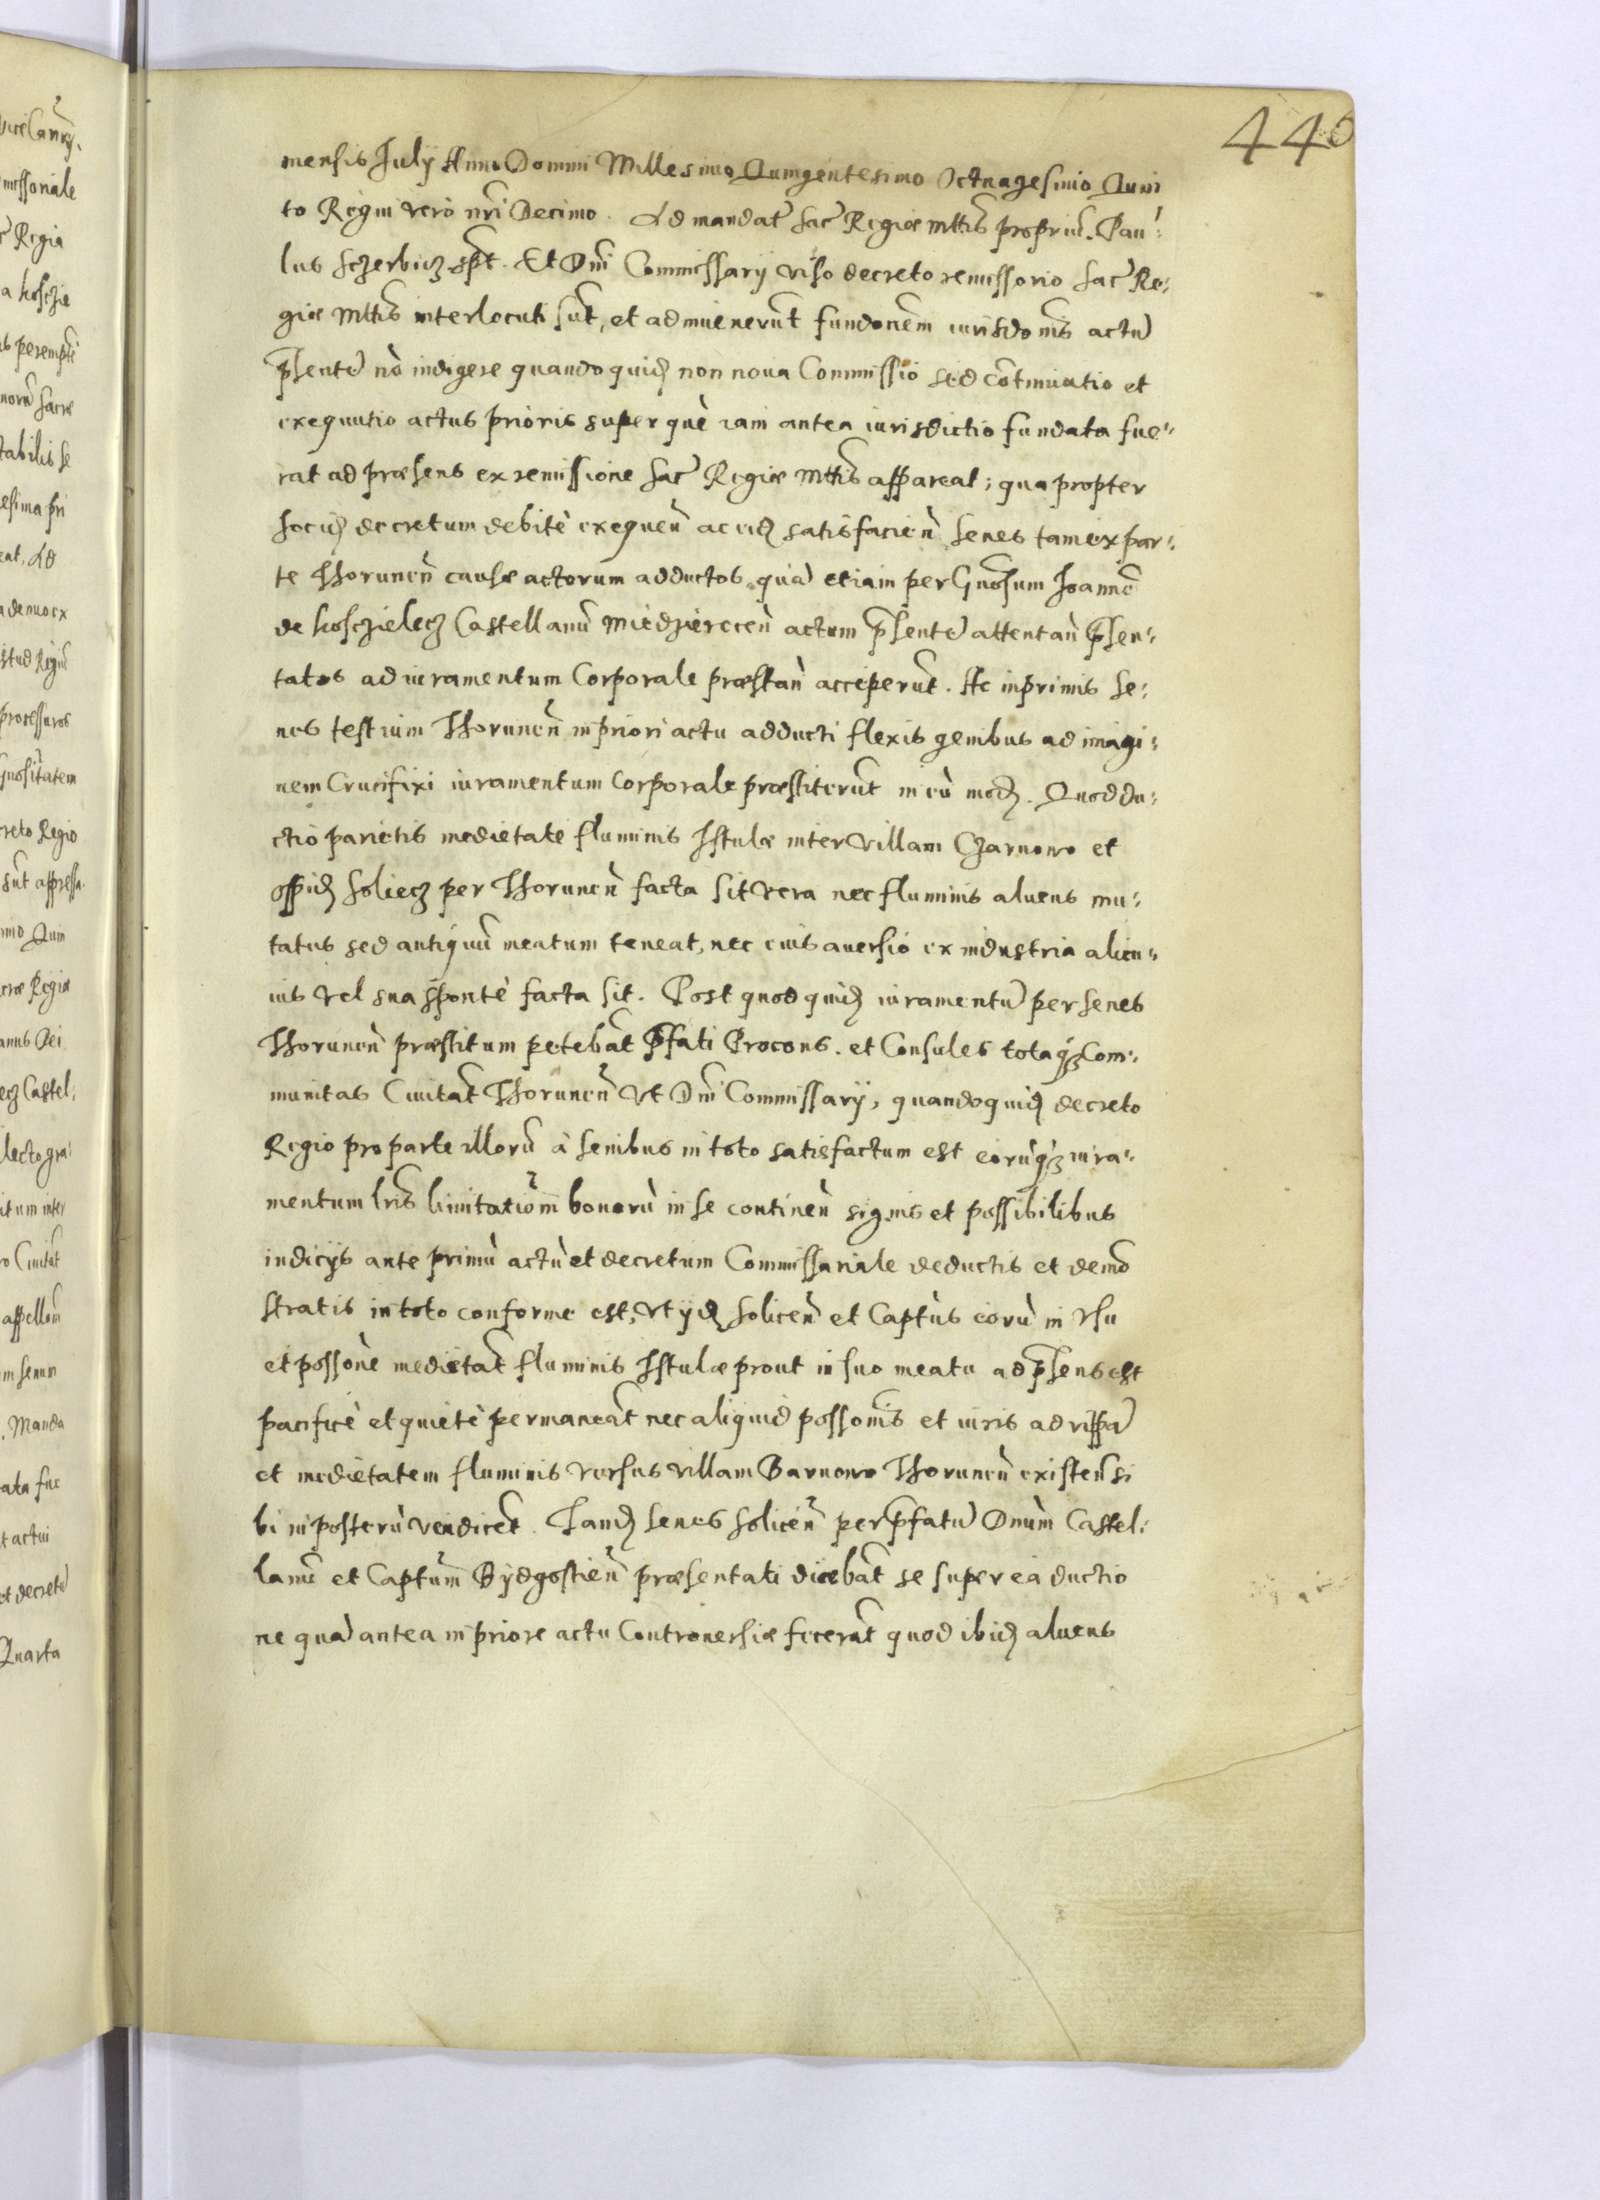 440
mensis July Anno Domini Millesimo Quingentesimo Octuagesimo Quin
to Regni vero nri Decimo. Ad mandat Sac Regiæ mttis propriu. Pau-
lus Sczerbicz spt. Et Dni Commissarÿ viso decreto remissorio Sac Re-
giæ Mttis interlocuti sut, et adinvenerut fundonem iurisdonis actu
psente nò indigere quandoquid non nova Commissio sed cotinuatio et
exequutio actus prioris super què iam antea iurisdictio fundata fue-
rat ad præsens ex remissione Sac Regiæ Mttis appareat; qua propter
hocid decretum debitè exequen ac eid satisfacien senes tam ex par-
te Thorunen causæ actorum adductos, qua etiam per Gnosum Joanne
de Kosczielecz Castellanu Miedzierecen actum psente attentan psen-
tatos ad iuramentum Corporale præstan acceperut. Ac inprimis Se-
nes testium Thorunen in priori actu adducti flexis genibus ad imagi-
nem Crucifixi iuramentum corporale præstiterut in eù mod. Quod du-
ctio parietis medietate fluminis Istulæ inter villam Czarnowo et
oppid Soliecz per Thorunen facta sit vera nec fluminis alveus mu-
tatus sed antiquu meatum teneat, nec eius aversio ex industria alicu-
ius vel sua sponte facta sit. Post quod quid iuramentu per senes
Thorunen præstitum petebat pfati Procons. et Consules totaqz Com-
munitas Civitat Thorunen vt Dni Commissarÿ, quandoquid decreto
Regio pro parte illoru à senibus in toto satisfactum est eorùqz iura-
mentum lris limitationu bonorù in se continen signis et possibilibus
indicÿs ante primù actù et decretum Commissariale deductis et demo
stratis in toto conforme est, vt ÿd Solicen et Captùs eorù in vsu
et possonè medietat fluminis Istulæ prout in suo meatu ad psens est
pacificè et quietè permaneat nec aliquid possonis et iuris ad rippa
et medietatem fluminis versus villam Barnowo Thorunen existen si
bi in posterù vendicet. Tand senes Solicen per pfatu Dnùm Castel-
lanu et Captum Bydgostien præsentati dicebat se super ea ductio
ne qua antea in priore actu Controversiæ fecerat quod ibid alveus